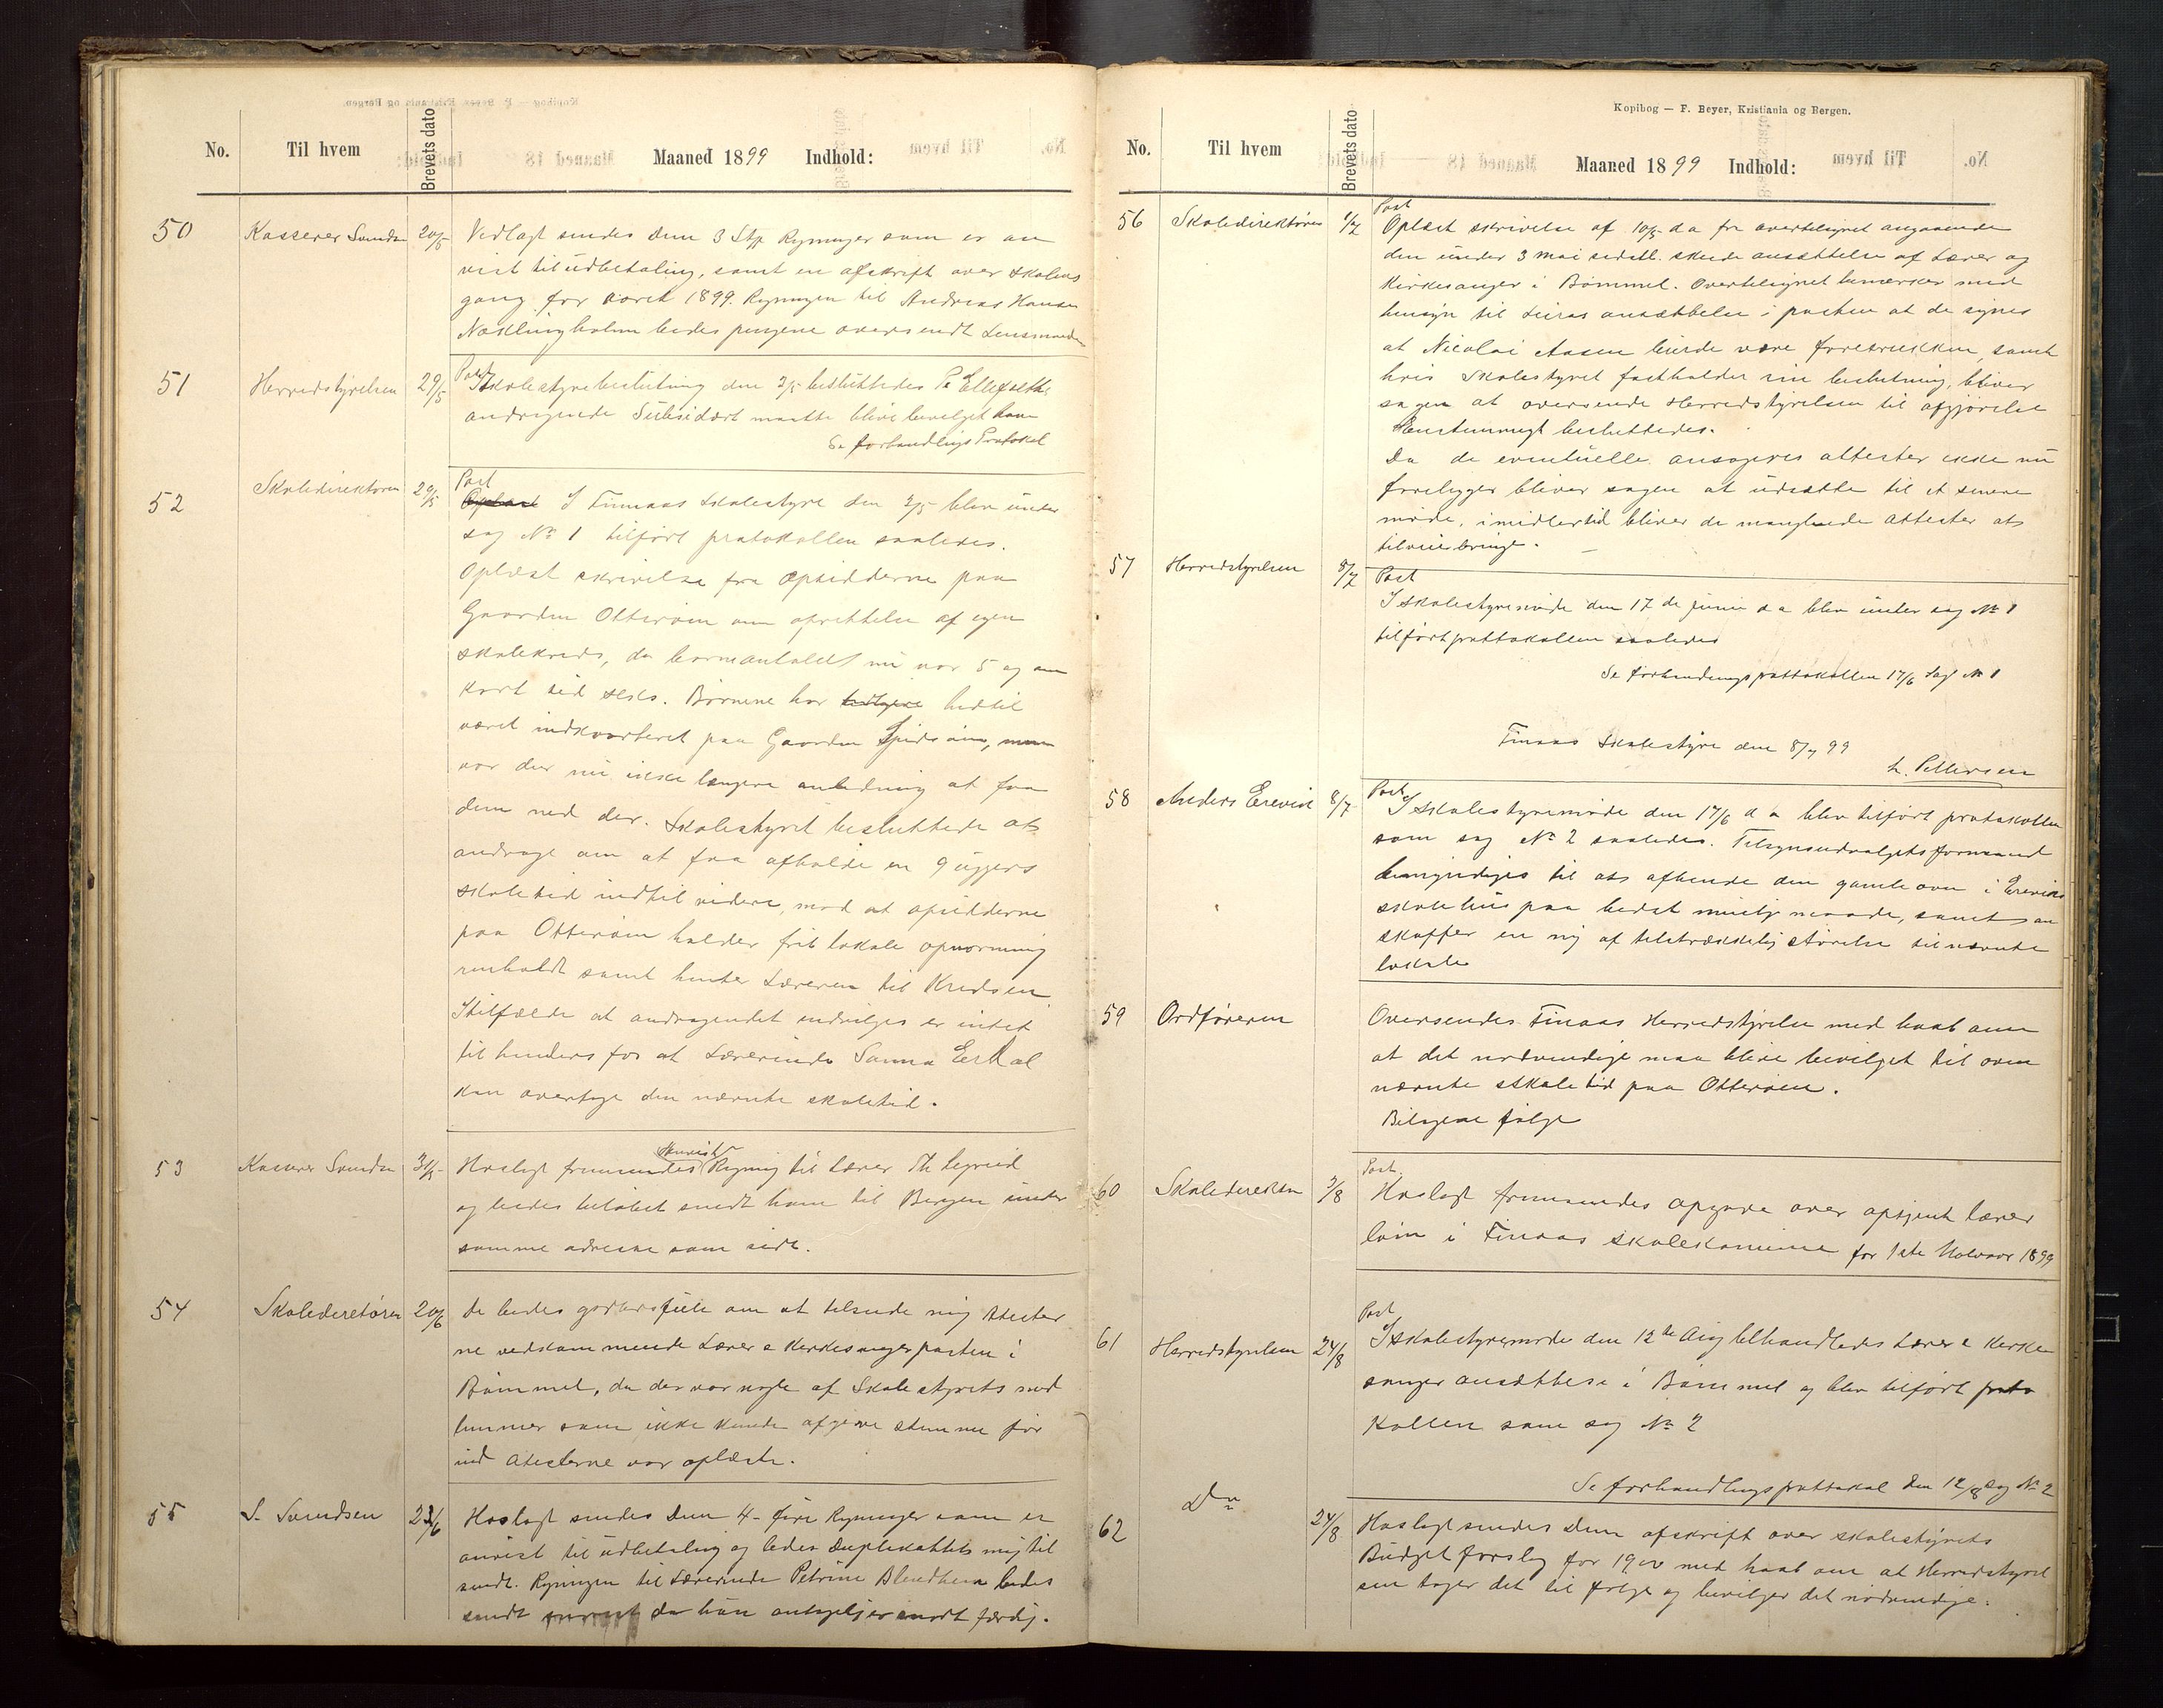 No. Til hvem Brevets dato Maaned 1899 Indhold:
50 Kasserer Svendsen 20/5 Vedlagt sendes Dem 3 Stk Regninger som er an
vist til udbetaling, samt en afskrift over skolens
gang for aaret 1899. Regningen til Andreas Hansen
Nøklingholm bedes pengene oversendt Lensmanden
51 Herredstyrelsen 29/5 Post
I Skolestyrebeslutning den 3/5 besluttedes P. Ellefseths
andragende Subsidært maatte blive bevilget ham
Se forhandlings Protokol
52 Skoledirektøren 29/5 Post
Oplæst I Finnaas Skolestyre den 3/5 blev under
sag No 1 tilført protokollen saaledes.
Oplæst skrivelse fra opsidderne paa
Gaarden Otterøen om oprettelse af egen
skolekreds, da børneantallet nu var 5 og om
kort tid seks. Børnene har tidligere hidtil
været indkvarteret paa Gaarden Spidsøen, men
var der nu ikke længere anledning at faa
dem ned der. Skolestyret besluttede at
andrage om at faa afholde en 9 ugers
skoletid indtil videre, mod at opsidderne
paa Otterøen holder frit lokale opvarming
renholdt samt henter Læreren til Kredsen.
I tilfælde at andragendet indvilges er intet
til hinders for at Lærerinde Sanna Eskol
kan overtage den nævnte skoletid.
53 Kasserer Svendsen 31/5 Hoslagt fremsendes Anvist Regning til Lærer Th Legreid
og bedes beløbet sendt ham til Bergen under
samme adresse som sidst.
54 Skolederetøren 20/6 De bedes godhedsfuld om at tilsende mig Atester
ne vedkommende Lærer & Kirkesangerposten i
Bømmel, da der var nogle af Skolestyrets med
lemmer som ikke kunde afgive stemme før
ind Atesterne var oplæste.
55 S. Svendsen 23/6 Hoslagt sendes Dem 4 - fire Regninger som er
anvist til udbetaling og bedes Duplikattet mig til
sendt. Regningen til Lærerinde Petrine Blendheim bedes
sendt snarest da hun antagelig er snart færdig.
Kopibog — F. Beyer, Kristiania og Bergen.
No. Til hvem Brevets dato Maaned 1899 Indhold:
56 Skoledirektøren 1/7 Post
Oplæst skrivelse af 10/5 d a fra overtilsynet angaaende
den under 3 mai sidstl. skeede ansættelse af Lærer og
Kirkesanger i Bømmel. Overtilsynet bemærker med
hensyn til Leiras ansættelse i posten at de synes
at Nicolai Aasen burde være foretrukken, samt
hvis Skolestyret fastholder sin beslutning, bliver
sagen at oversende Herredstyrelsen til afgjørelse
Eenstemmigt besluttedes.
Da de eventuelle ansøgeres attester ikke nu
foreligger bliver sagen at udsætte til et senere
møde, imidlertid bliver de manglende attester at
tilveiebringe.
57 Herredstyrelsen 8/7 Post
I skolestyremøde den 17 de juni d a blev under sag No 1
tilført prottokollen saaledes
Se forhandlingsprottokollen 17/6 Sag No 1
Finaas Skolestyre den 8/7 99
L. Pettersen
58 Anders Erevik 8/7 Post
I skolestyremøde den 17/6 d a blev tilført protokollen
som sag No 2 saaledes. Tilsynsudvalgets formand
bemyndiges til at afhende den gamle ovn i Ereviks
skolehus paa bedst mulig maade, samt an
skaffer en ny af tilstrækkelig størelse til nævnte
lokale
59 Ordføreren Oversendes Finaas Herredstyrelse med haab om
at det nødvendige maa blive bevilget til oven
nævnte skoletid paa Otterøen.
Bilagene følge
60 Skolederektøren 3/8 Post
Hoslagt fremsendes opgave over optjent lærer
løn i Finaas skolekomune for 1ste Halvaar 1899
61 Herredstyrelsen 24/8 Post
I skolestyremøde den 12te Aug behandledes Lærer & Kirke
sanger ansættelse i Bømmel og blev tilført proto
kollen som sag No 2
Se forhandlingsprottokol den 12/8 Sag No 2
62 Do 24/8 Hoslagt sendes Dem afskrift over skolestyrets
Budgetforslag for 1900 med haab om at Herredstyrel
sen tager det til følge og bevilger det nødvendige.